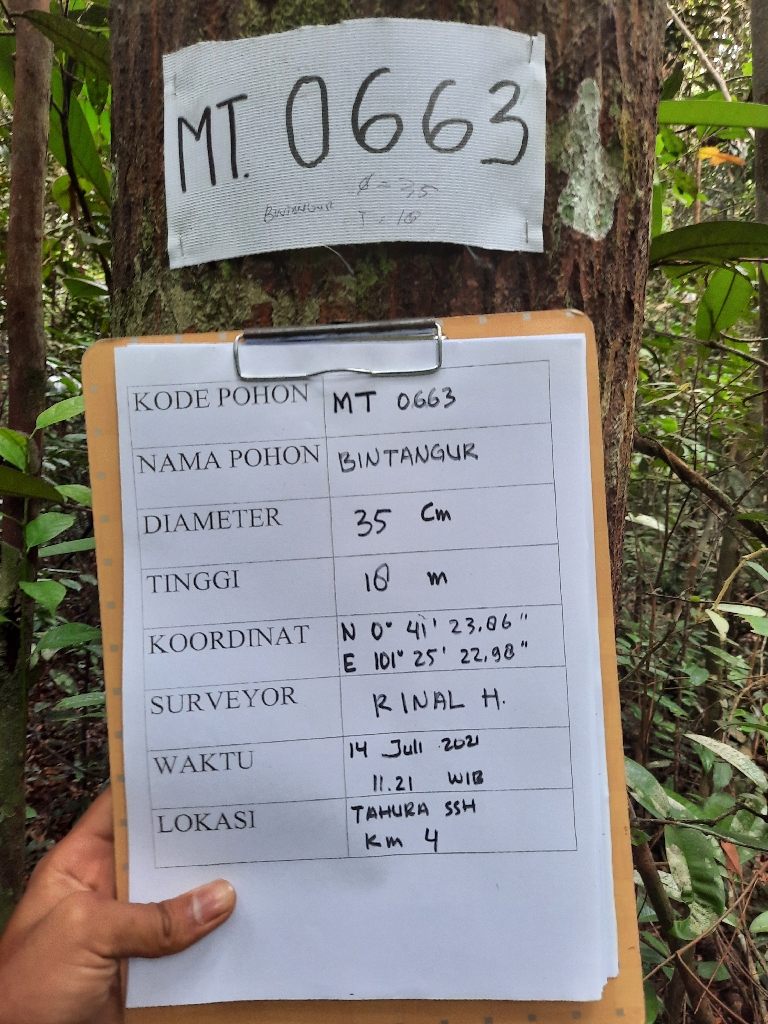 MT. 0663
Ø = 35
BINTANGUR
T = 18
KODE POHON MT 0663
NAMA POHON BINTANGUR
DIAMETER 35 Cm
TINGGI 18 m
KOORDINAT N 0° 41' 23,86"
E 101° 25' 22,98"
SURVEYOR RINAL H.
WAKTU 14 Juli 2021
11.21 WIB
LOKASI TAHURA SSH
Km 4